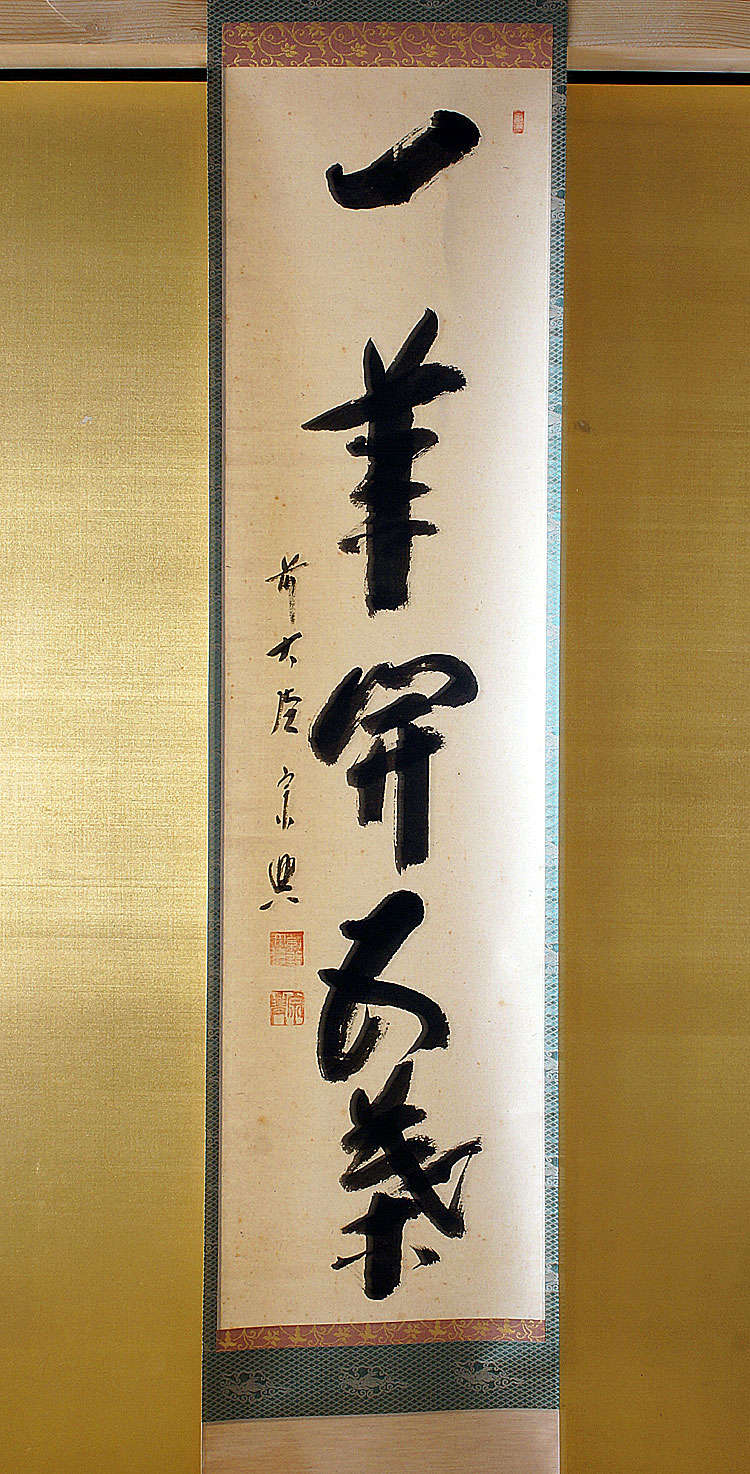 一華開五葉
前大徳宗興